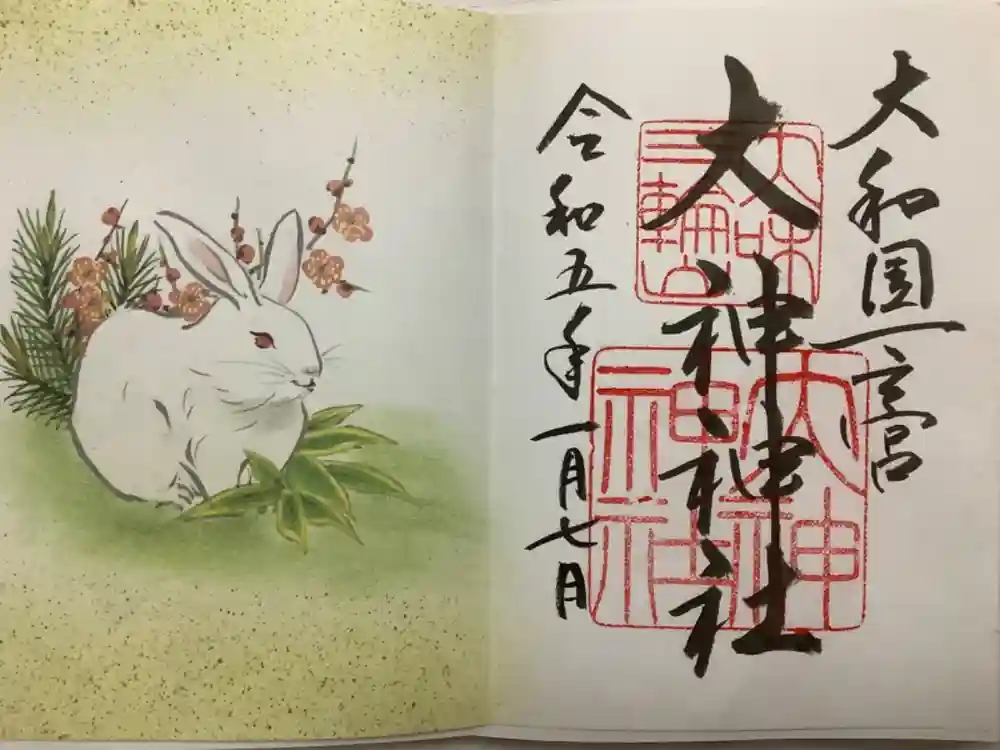 大和国一宮
大神神社
令和五年一月七日
三輪山
大神
神社